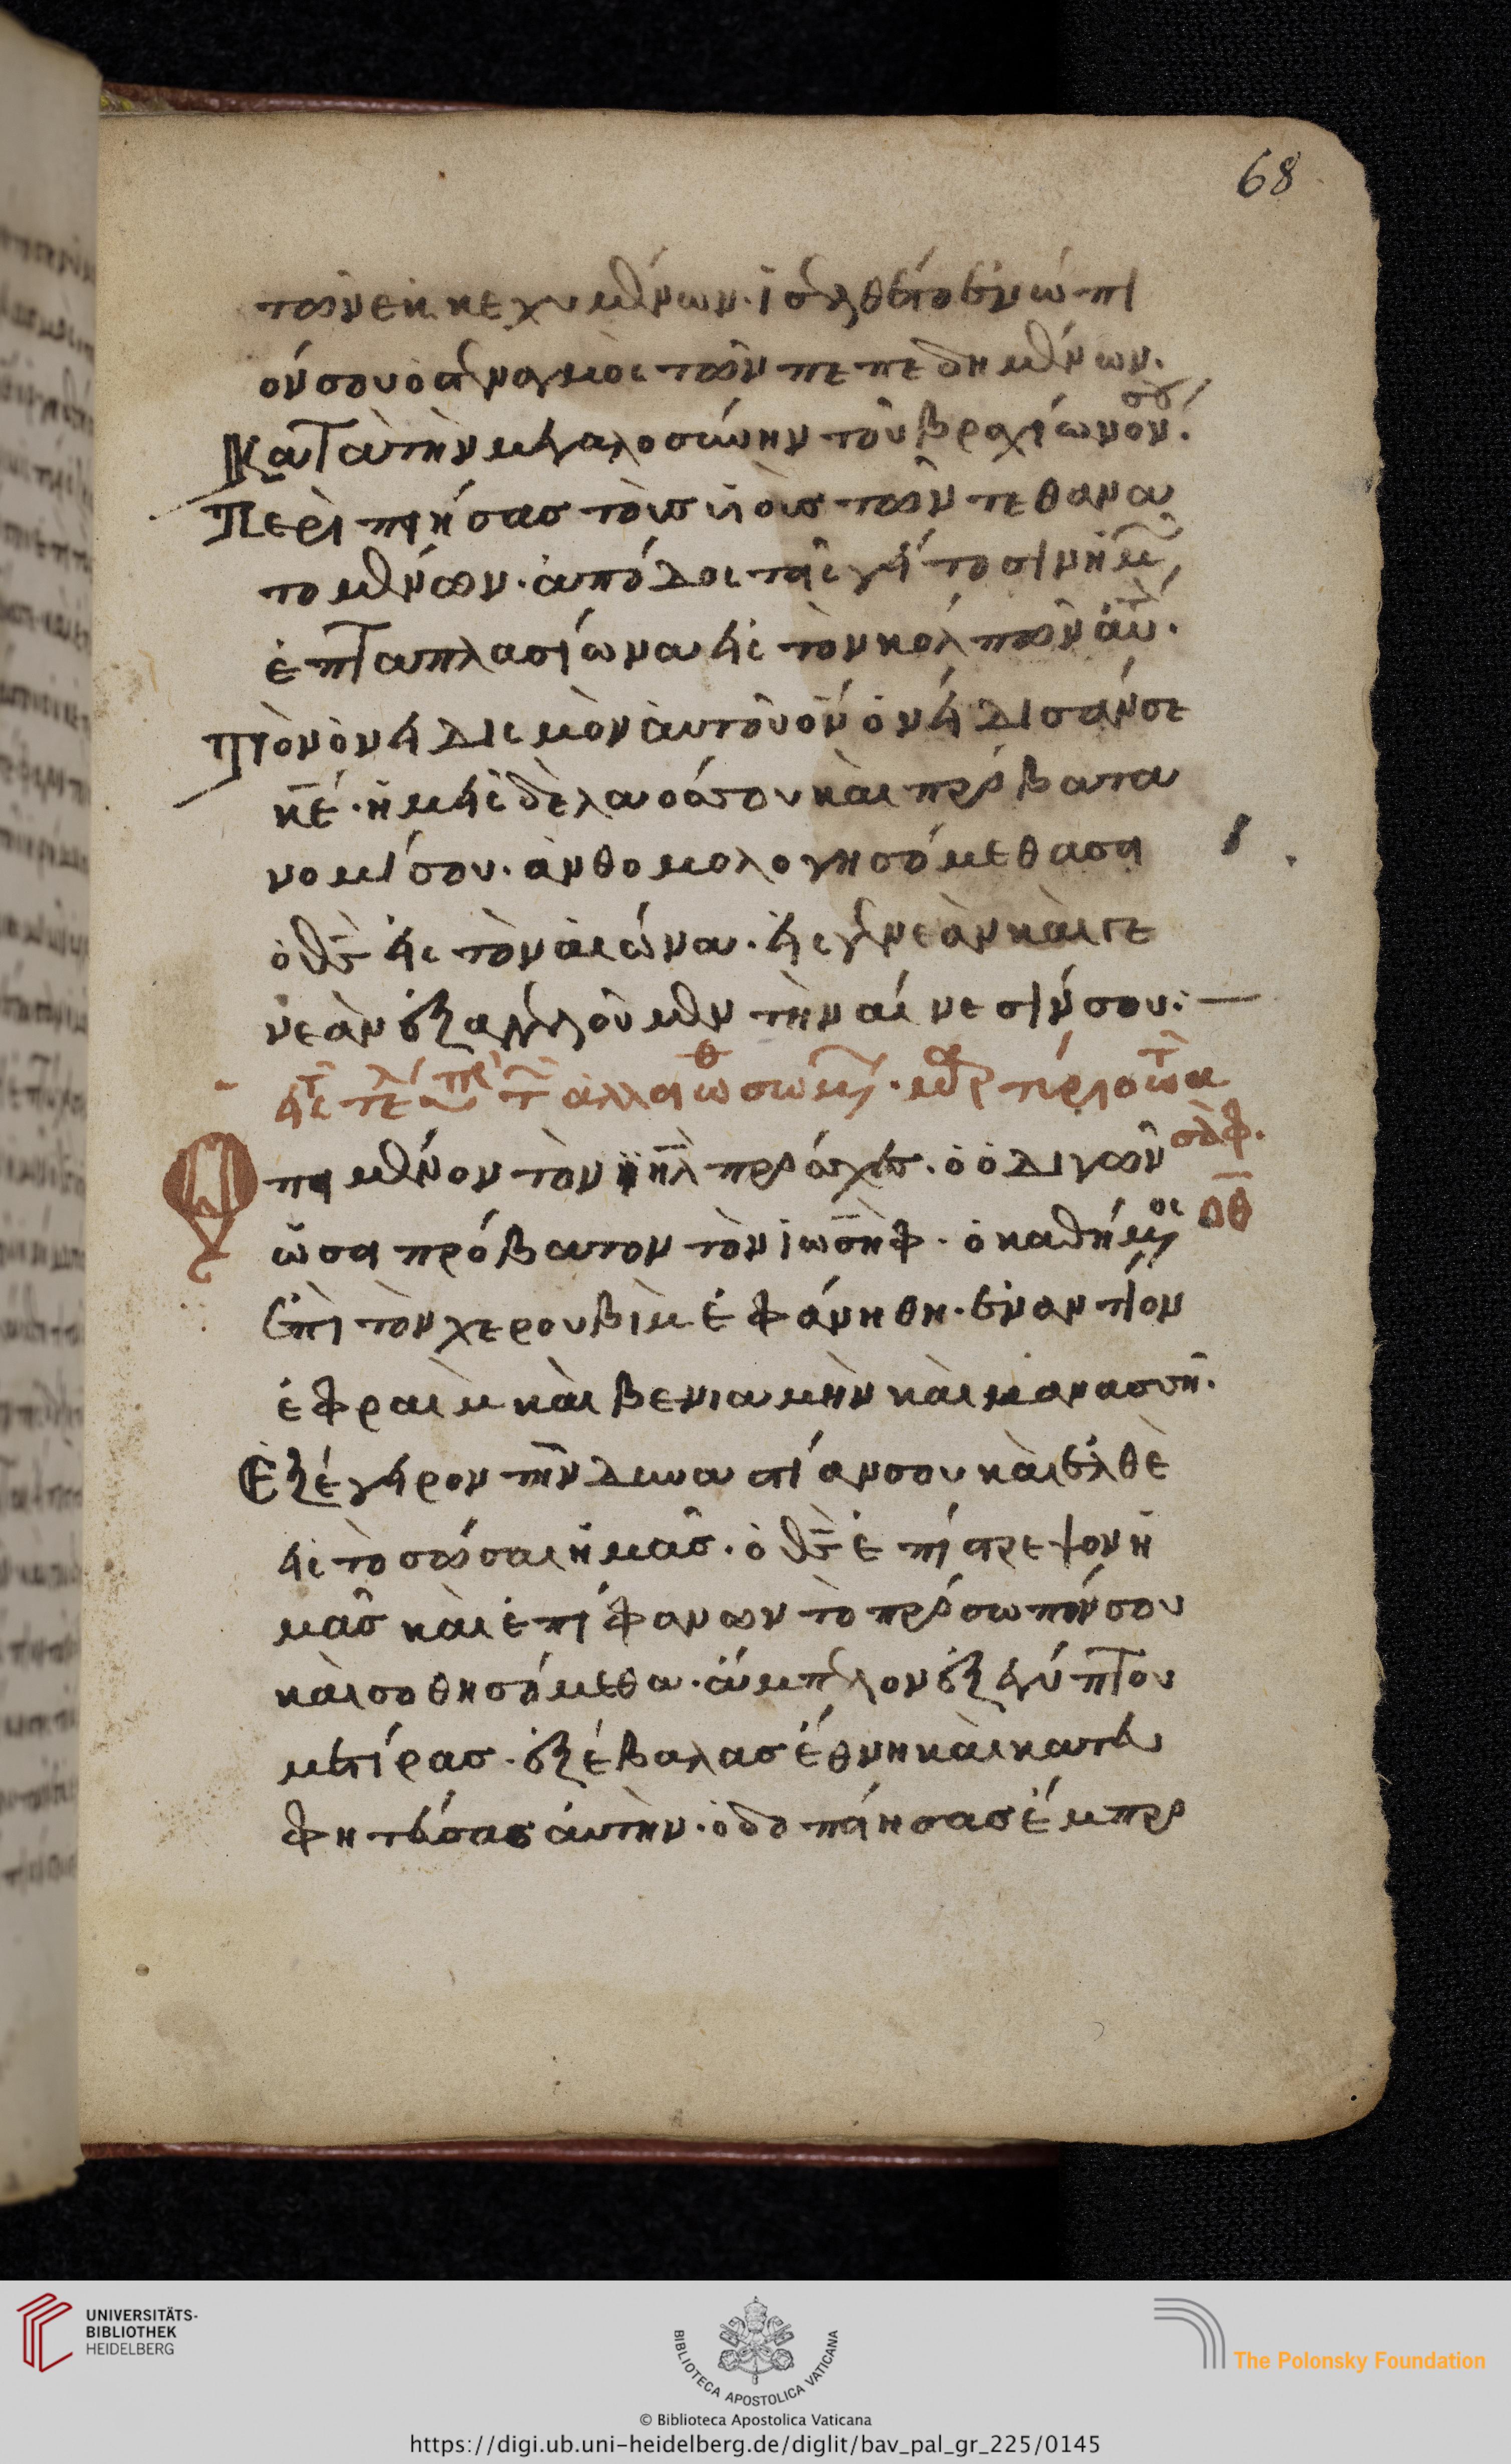 68
τῶν ἐκκεχυμένων· ἰσελθέτο ἐνώπι
όν σου ὁ στεναγμὸς τῶν πεπεδημένων·
Κατὰ τὴν μεγαλοσύνην τοῦ βραχίωνόν σου·
Περιποίησαι τοὺς υἱοὺς τῶν τεθανα
τομένων· ἀπόδος τοῖς γείτοσιν ἡμῶν
ἑπταπλασίωνα εἰς τὸν κόλπων αὐτῶν·
Τὸν ὀνειδισμὸν αὐτοῦ ὃν ὀνείδισάν σε
κ̅ε̅· ἡμεῖς δὲ λαός σου καὶ πρόβατα
νομίσου· ἀνθομολογησόμεθά σοι
ὁ θ̅ς̅ εἰς τὸν αἰῶνα· εἰς γενεὰν καὶ γε
νεὰν ἐξαγγελοῦμεν τὴν αἴνεσίν σου·
εἰς τὸ τέλος ὑπὲρ τῶν ἀλλοιωθησωμένων· μαρτύριον τῶ ἀ
σὰφ·
ο̅θ̅
Ὁ ποιμένων τὸν ι̅η̅λ̅ πρόσχες· ὁ ὁδιγῶν
ὡσεὶ πρόβατον τὸν ἰωσὴφ· ὁ καθήμενος
ἐπὶ τὸν χερουβὶμ ἐφάνηθη· ἐναντίον
ἐφραὶμ καὶ βενιαμὴν καὶ μανασσῆ·
Ἐξέγειρον τὴν δυναστίαν σου καὶ ἐλθὲ
εἰς τὸ σῶσαι ἡμᾶς· ὁ θ̅ς̅ ἐπίστρεψον ἡ
μᾶς καὶ ἐπίφανων τὸ πρόσωπόν σου
καὶ σοθησόμεθα· ἄμπελον ἐξ ἐγύπτου
μετίρας· ἐξέβαλας ἔθνη καὶ κατε
φητεύσας αὐτὴν· ὁδοποίησας ἔμπρο
UNIVERSITÄTS-
BIBLIOTHEK
HEIDELBERG
BIBLIOTECA APOSTOLICA VATICANA
The Polonsky Foundation
© Biblioteca Apostolica Vaticana
https://digi.ub.uni-heidelberg.de/diglit/bav_pal_gr_225/0145